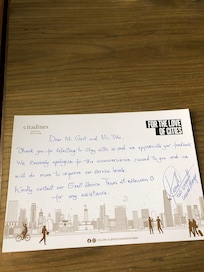 citadines
FOR THE LOVE
OF CITIES
Dear Mr and Ms
Thank you for selecting to stay with us and we appreciate your feedback
We sincerely apologize for the inconvenience caused to you and we
will do more to improve our service levels.
Kindly contact our Guest Service Team at extension 0
for any assistance.